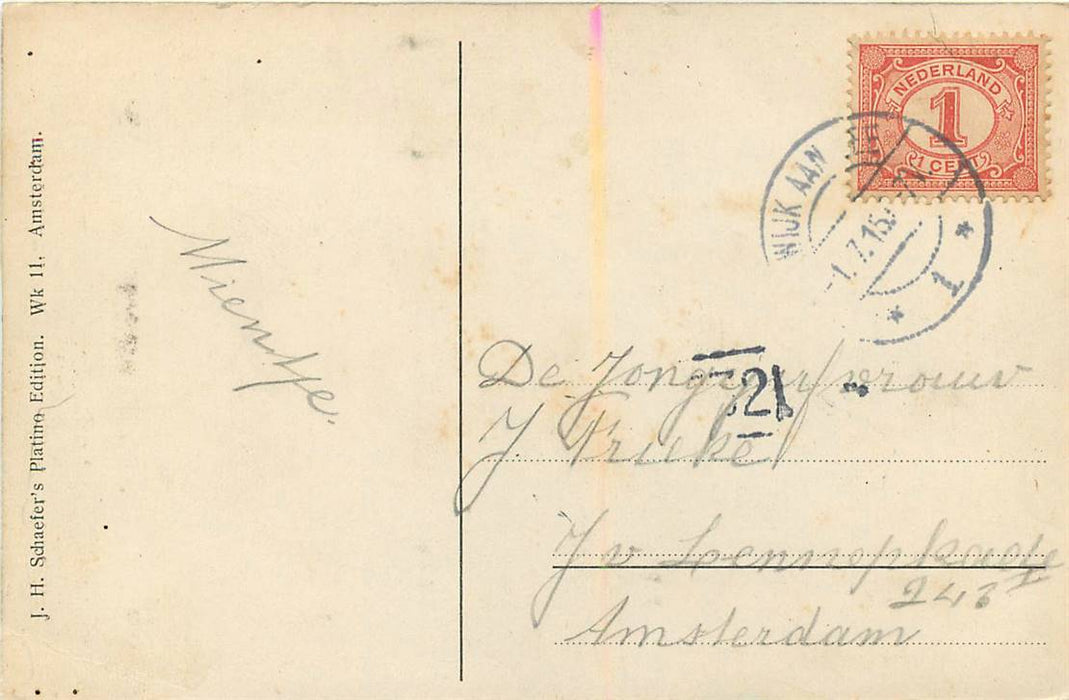 J. H. Schaefer's Platino Edition. Wk 11. Amsterdam.
Mientje.
NEDERLAND
1
1 CENT
WIJK AAN
-1.7.16
* 1 *
21
De Jongejufvrouw
J.
J v Lennepkade
Amsterdam